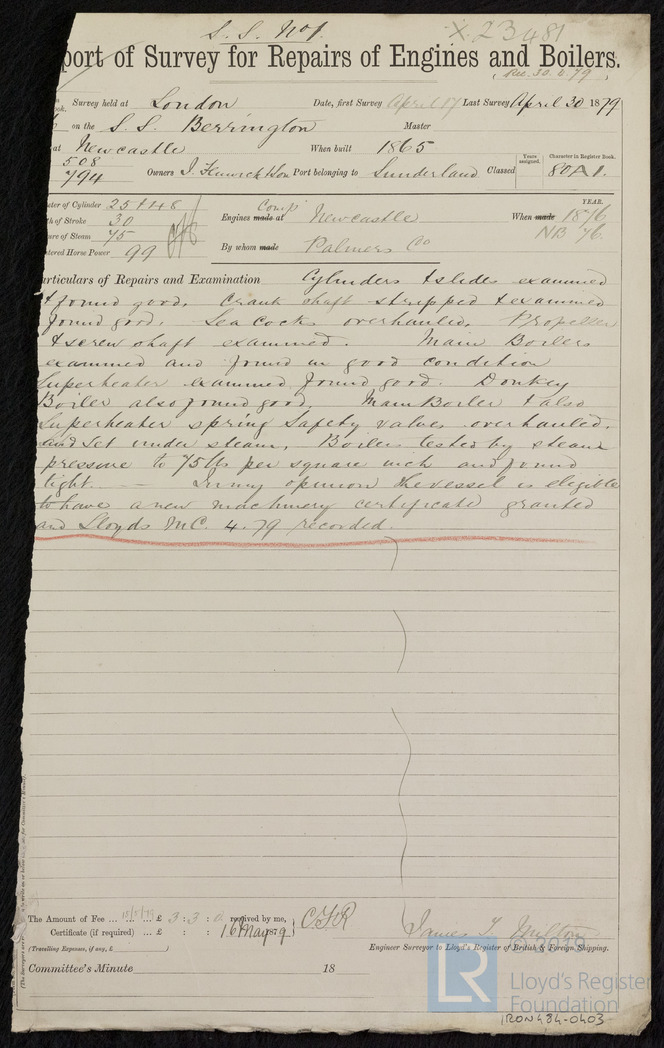 S. S. No 1.
X.23481
port of Survey for Repairs of Engines and Boilers.
Rec. 30.5.79
Survey held at London Date, first Survey April 17 Last Survey April 30 1879
on the S.S. Berrington Master
at Newcastle When built 1865
508
794 Owners J. Fenwick & Son Port belonging to Sunderland Classed
Years assigned.
Character in Register Book.
80 A 1.
eter of Cylinder 25 & 48
th of Stroke 30
ure of Steam 75
stered Horse Power 99
Comp
Engines made at Newcastle
By whom made Palmers Co
YEAR.
When made 1876
NB 76.
articulars of Repairs and Examination Cylinders & slides examined
& found good. Crank shaft stripped & examined
found good. Sea Cocks overhauled. Propeller
& screw shaft examined. Main Boilers
examined and found in good condition
Superheater examined found good. Donkey
Boiler also found good. Main Boiler & also
Superheater spring Safety valves overhauled.
and set under steam. Boilers tested by steam
pressure to 75 lbs per square inch and found
tight. — In my opinion the vessel is eligible
to have a new machinery certificate granted
and Lloyds M.C. 4.79 recorded.
The Amount of Fee ... £ 3 : 3 : 0 received by me,
Certificate (if required) ... £ : : 16 May 1879
(Travelling Expenses, if any, £ )
James T. Milton
Engineer Surveyor to Lloyd's Register of British & Foreign Shipping.
Committee's Minute 18
LR
© 2019
Lloyd's Register
Foundation
IRON484-0403